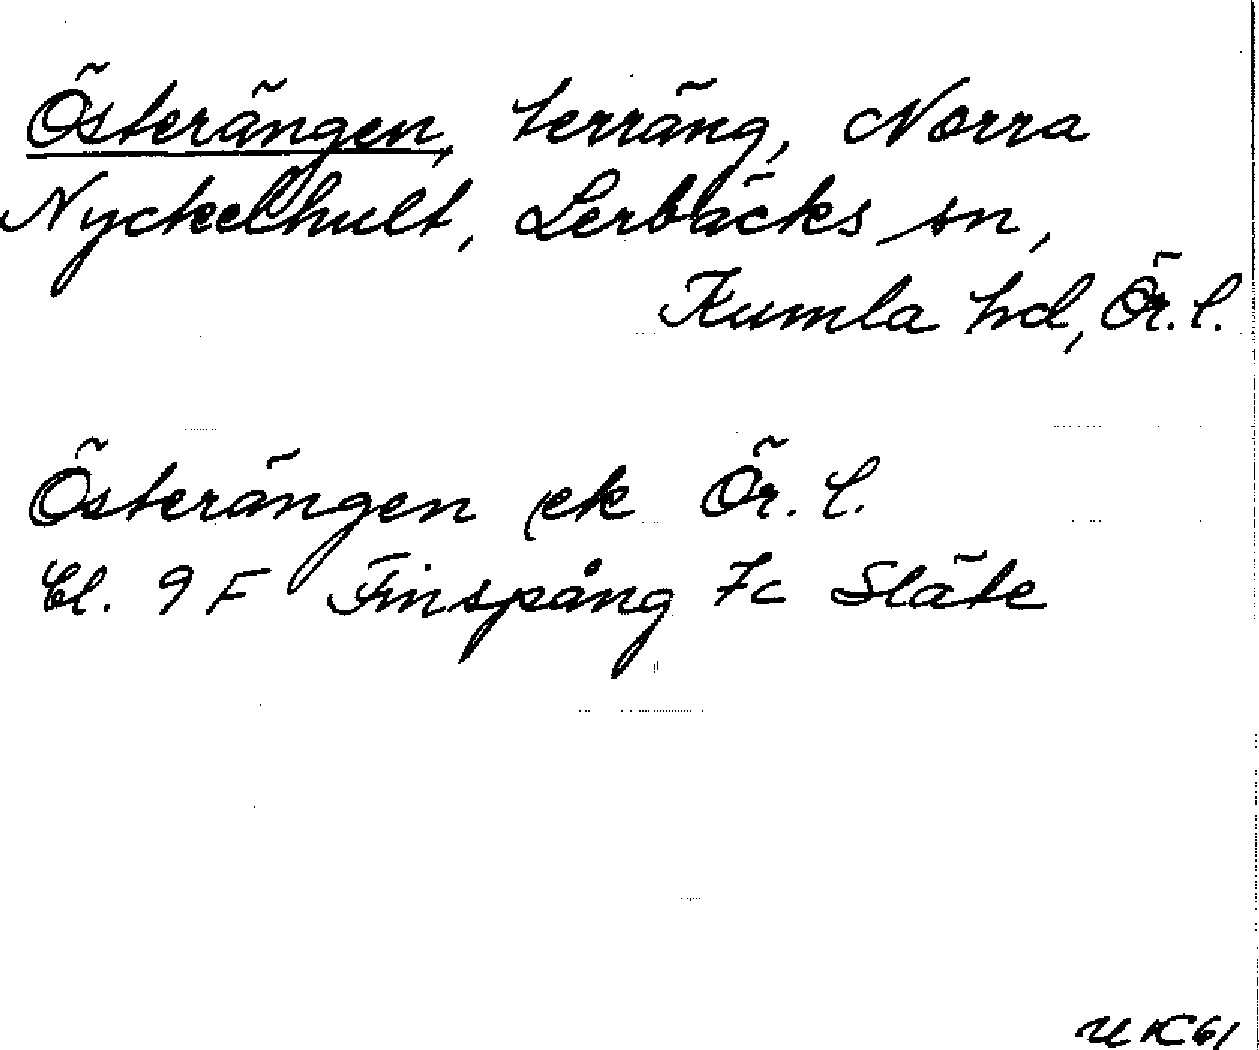 Österängen, terräng, Norra
Nyckelhult, Lerbäcks sn,
Kumla hd, Ör. l.
Österängen ek Ör. l.
Bl. 9 F Finspång 7c Släte
UK 61